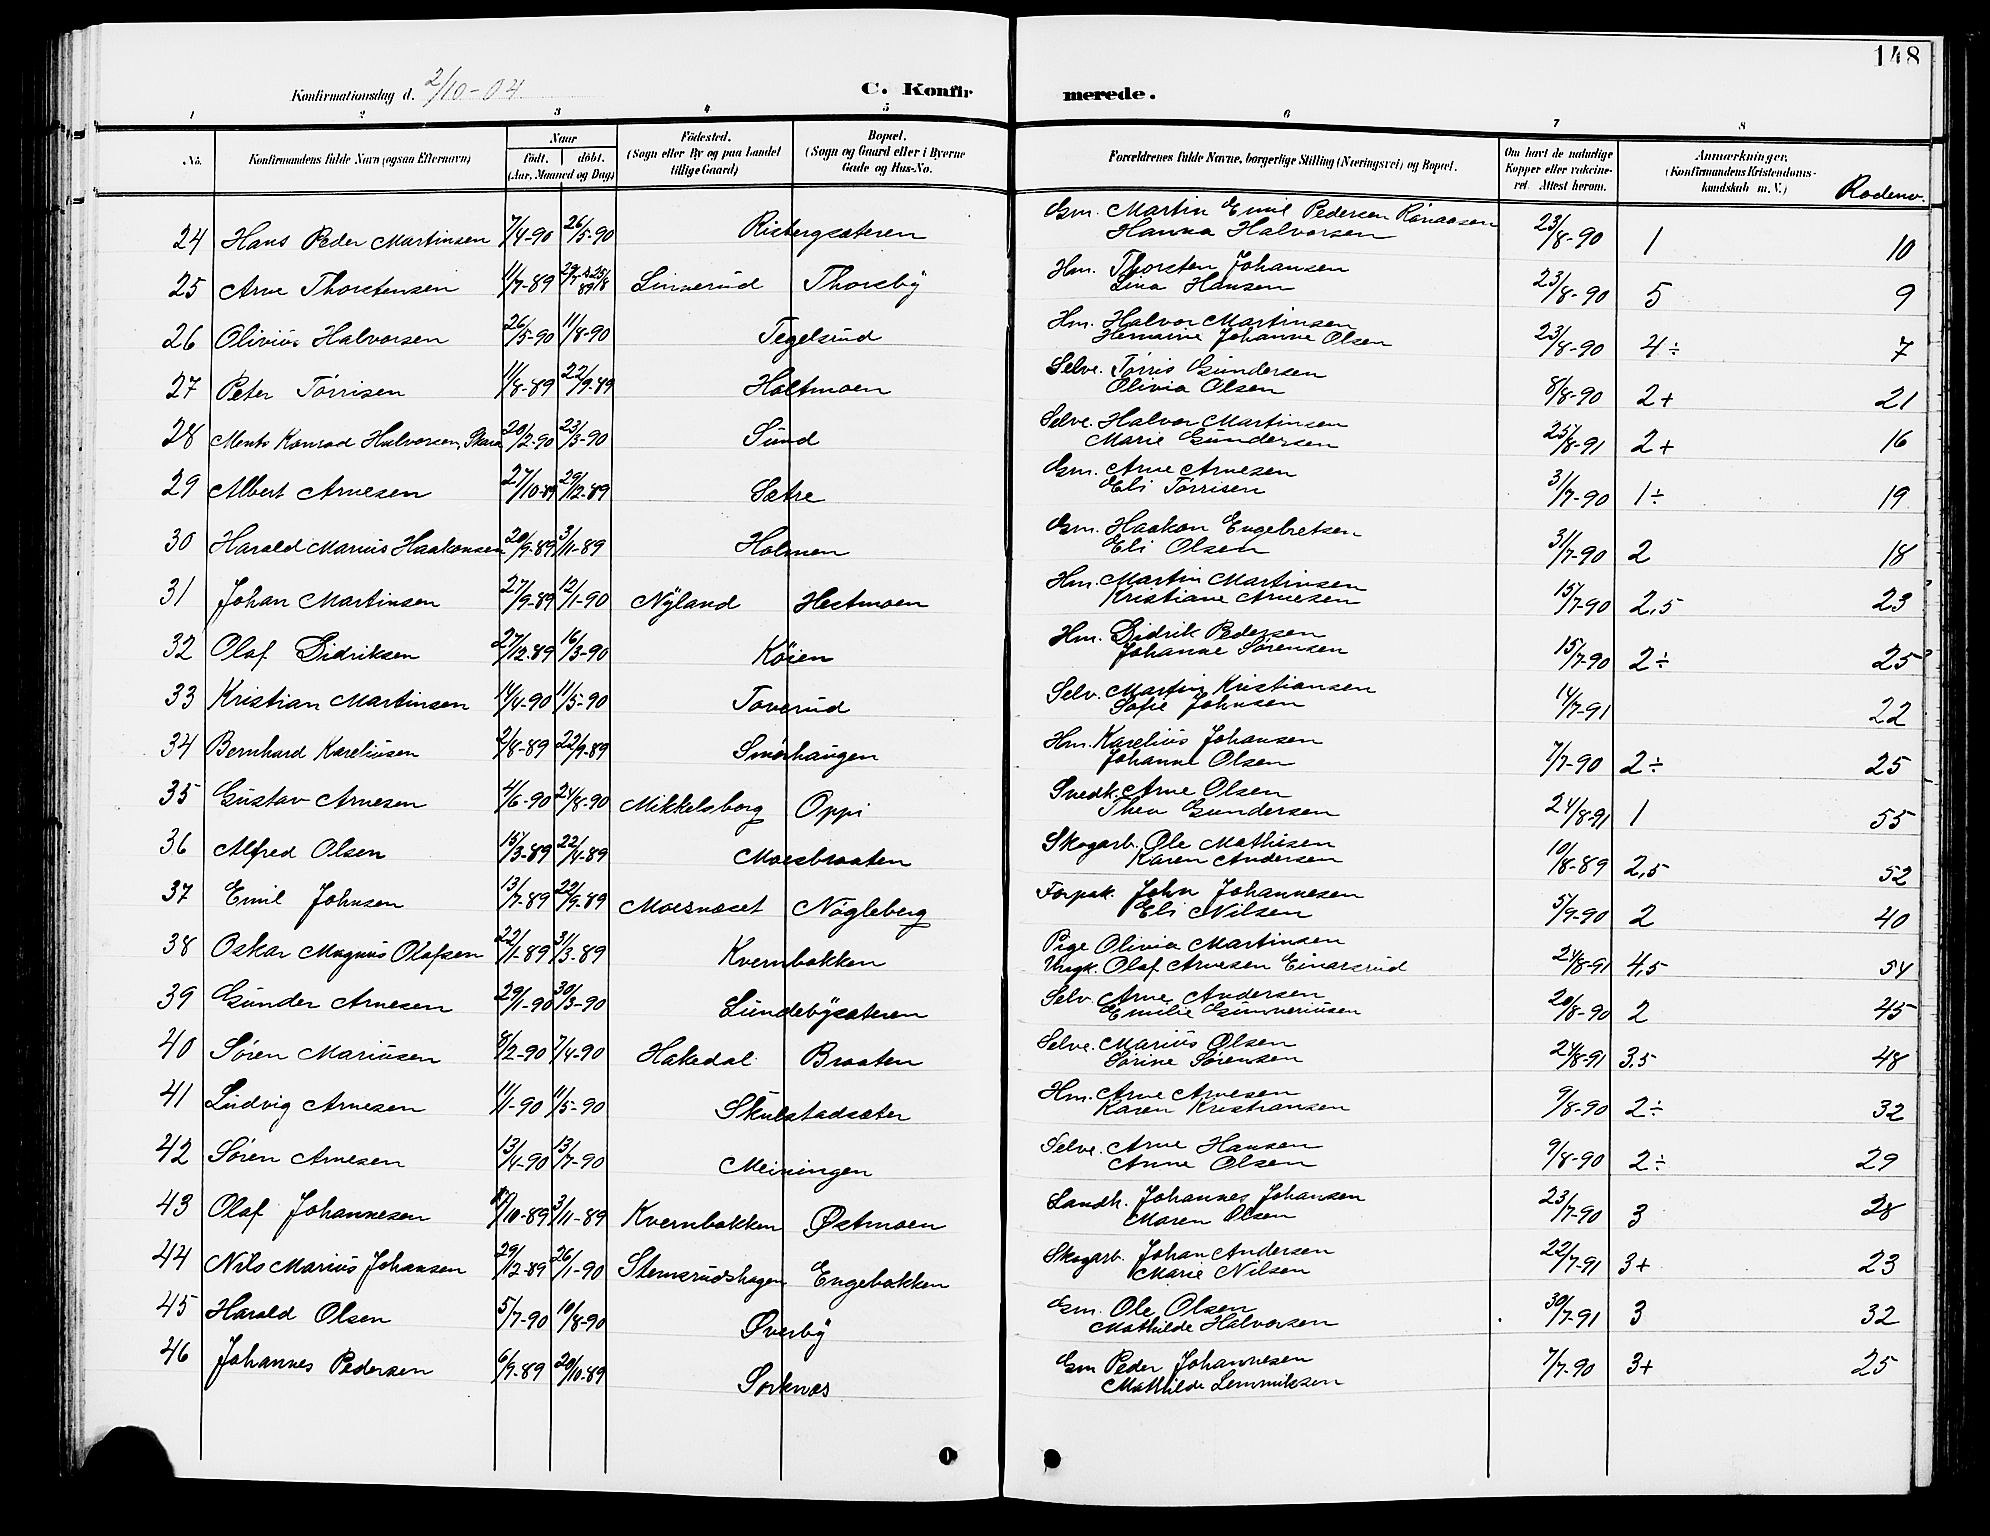 148
Konfirmationsdag d. 2/10-04
C. Konfir merede.
1 2 3 4 5 6 7 8
No. Konfirmandens fulde Navn (ogsaa Efternavn) Naar født. døbt. (Aar, Maaned og Dag) Fødested. (Sogn eller By og paa Landet tillige Gaard) Bopæl. (Sogn og Gaard eller i Byerne Gade og Hus-No. Forældrenes fulde Navne, borgerlige Stilling (Næringsvei) og Bopæl. Om havt de naturlige Kopper eller vaccineret. Attest herom. Anmærkninger. (Konfirmandens Kristendomskundskab m. V.) Rodenv.
24 Hans Peder Martinsen 7/4-90 26/5-90 Ristergsæteren Gm. Martin Emil Pedersen 23/8-90 1 10
Hanna Halvorsen
25 Arne Thorstensen 11/7-89 Linnerud Thorsby Hm. Thorsten Johansen 23/8-90 5 9
Lina Hansen
26 Olivius Halvorsen 26/5-90 11/8-90 Tegelsrud Hm. Halvor Martinsen 23/8-90 4÷ 7
Johanne Olsen
27 Peter Tørrisen 11/8-89 22/9-89 Holtmoen Selve. Tørris Gundersen 8/8-90 2+ 21
Olivia Olsen
28 Konrad Halvorsen 20/2-90 23/3-90 Sund Selve. Halvor Martinsen 25/8-91 2+ 16
Marie Gundersen
29 Albert Arnesen 27/10-89 29/12-89 Sætre Gm. Arne Arnesen 31/7-90 1÷ 19
Eli Tørrisen
30 Harald Marius Haakonsen 20/9-89 3/11-89 Holmen Gm. Haakon Engebretsen 31/7-90 2 18
Eli Olsen
31 Johan Martinsen 27/9-89 12/1-90 Nyland Hestmoen Hm. Martin Martinsen 15/7-90 2,5 23
Kristiane Arnesen
32 Olaf Didriksen 27/12-89 16/3-90 Køien Hm. Didrik Pedersen 15/7-90 2÷ 25
Johanne Sørensen
33 Kristian Martinsen 14/4-90 11/5-90 Toverud Selv. Martin Kristiansen 14/7-91 22
Sofie Johnsen
34 Bernhard Kareliusen 2/8-89 22/9-89 Smørhaugen Hm. Karelius Johansen 7/7-90 2÷ 25
Johanne Olsen
35 Gustav Arnesen 4/6-90 24/8-90 Mikkelsborg Oppi Snedk. Arne Olsen 24/8-91 1 55
Thea Gundersen
36 Alfred Olsen 15/3-89 22/4-89 Moesbraaten Skogarb. Ole Mathisen 10/8-89 2,5 52
Karen Andersen
37 Emil Johnsen 13/7-89 22/9-89 Moesnæset Nögleberg Forpak. John Johannesen 5/9-90 2 40
Eli Nilsen
38 Oskar Magnus Olafsen 22/1-89 3/3-89 Kvernbakken Pige Olivia Martinsen 24/8-91 4,5 54
Ungk. Olaf Arnesen Einarsrud
39 Gunder Arnesen 29/1-90 30/3-90 Lundebysæteren Selv. Arne Andersen 20/8-90 2 45
Emilie Gunneriusen
40 Søren Mariusen 8/2-90 7/4-90 Hakedal Braaten Selve. Marius Olsen 24/8-91 3,5 48
Sørine Sørensen
41 Ludvig Arnesen 11/1-90 11/5-90 Skulstadsæter Hm. Arne Arnesen 9/8-90 2÷ 32
Karen Kristiansen
42 Søren Arnesen 13/4-90 13/7-90 Meiningen Selve. Arne Hansen 9/8-90 2÷ 29
Anne Olsen
43 Olaf Johannesen 3/11-89 Kvernbakken Østmoen Landh. Johannes Johansen 23/7-90 3 28
Maren Olsen
44 Nils Marius Johansen 29/12-89 26/1-90 Stemsrudshagen Engebakken Skogarb. Johan Andersen 22/7-91 3+ 23
Marie Nilsen
45 Harald Olsen 5/7-90 10/8-90 Øverby Gm. Ole Olsen 30/7-91 3 32
Mathilde Halvorsen
46 Johannes Pedersen 6/9-89 20/10-89 Sorknæs Gm Peder Johannesen 7/7-90 3+ 25
Mathilde Lemmiksen